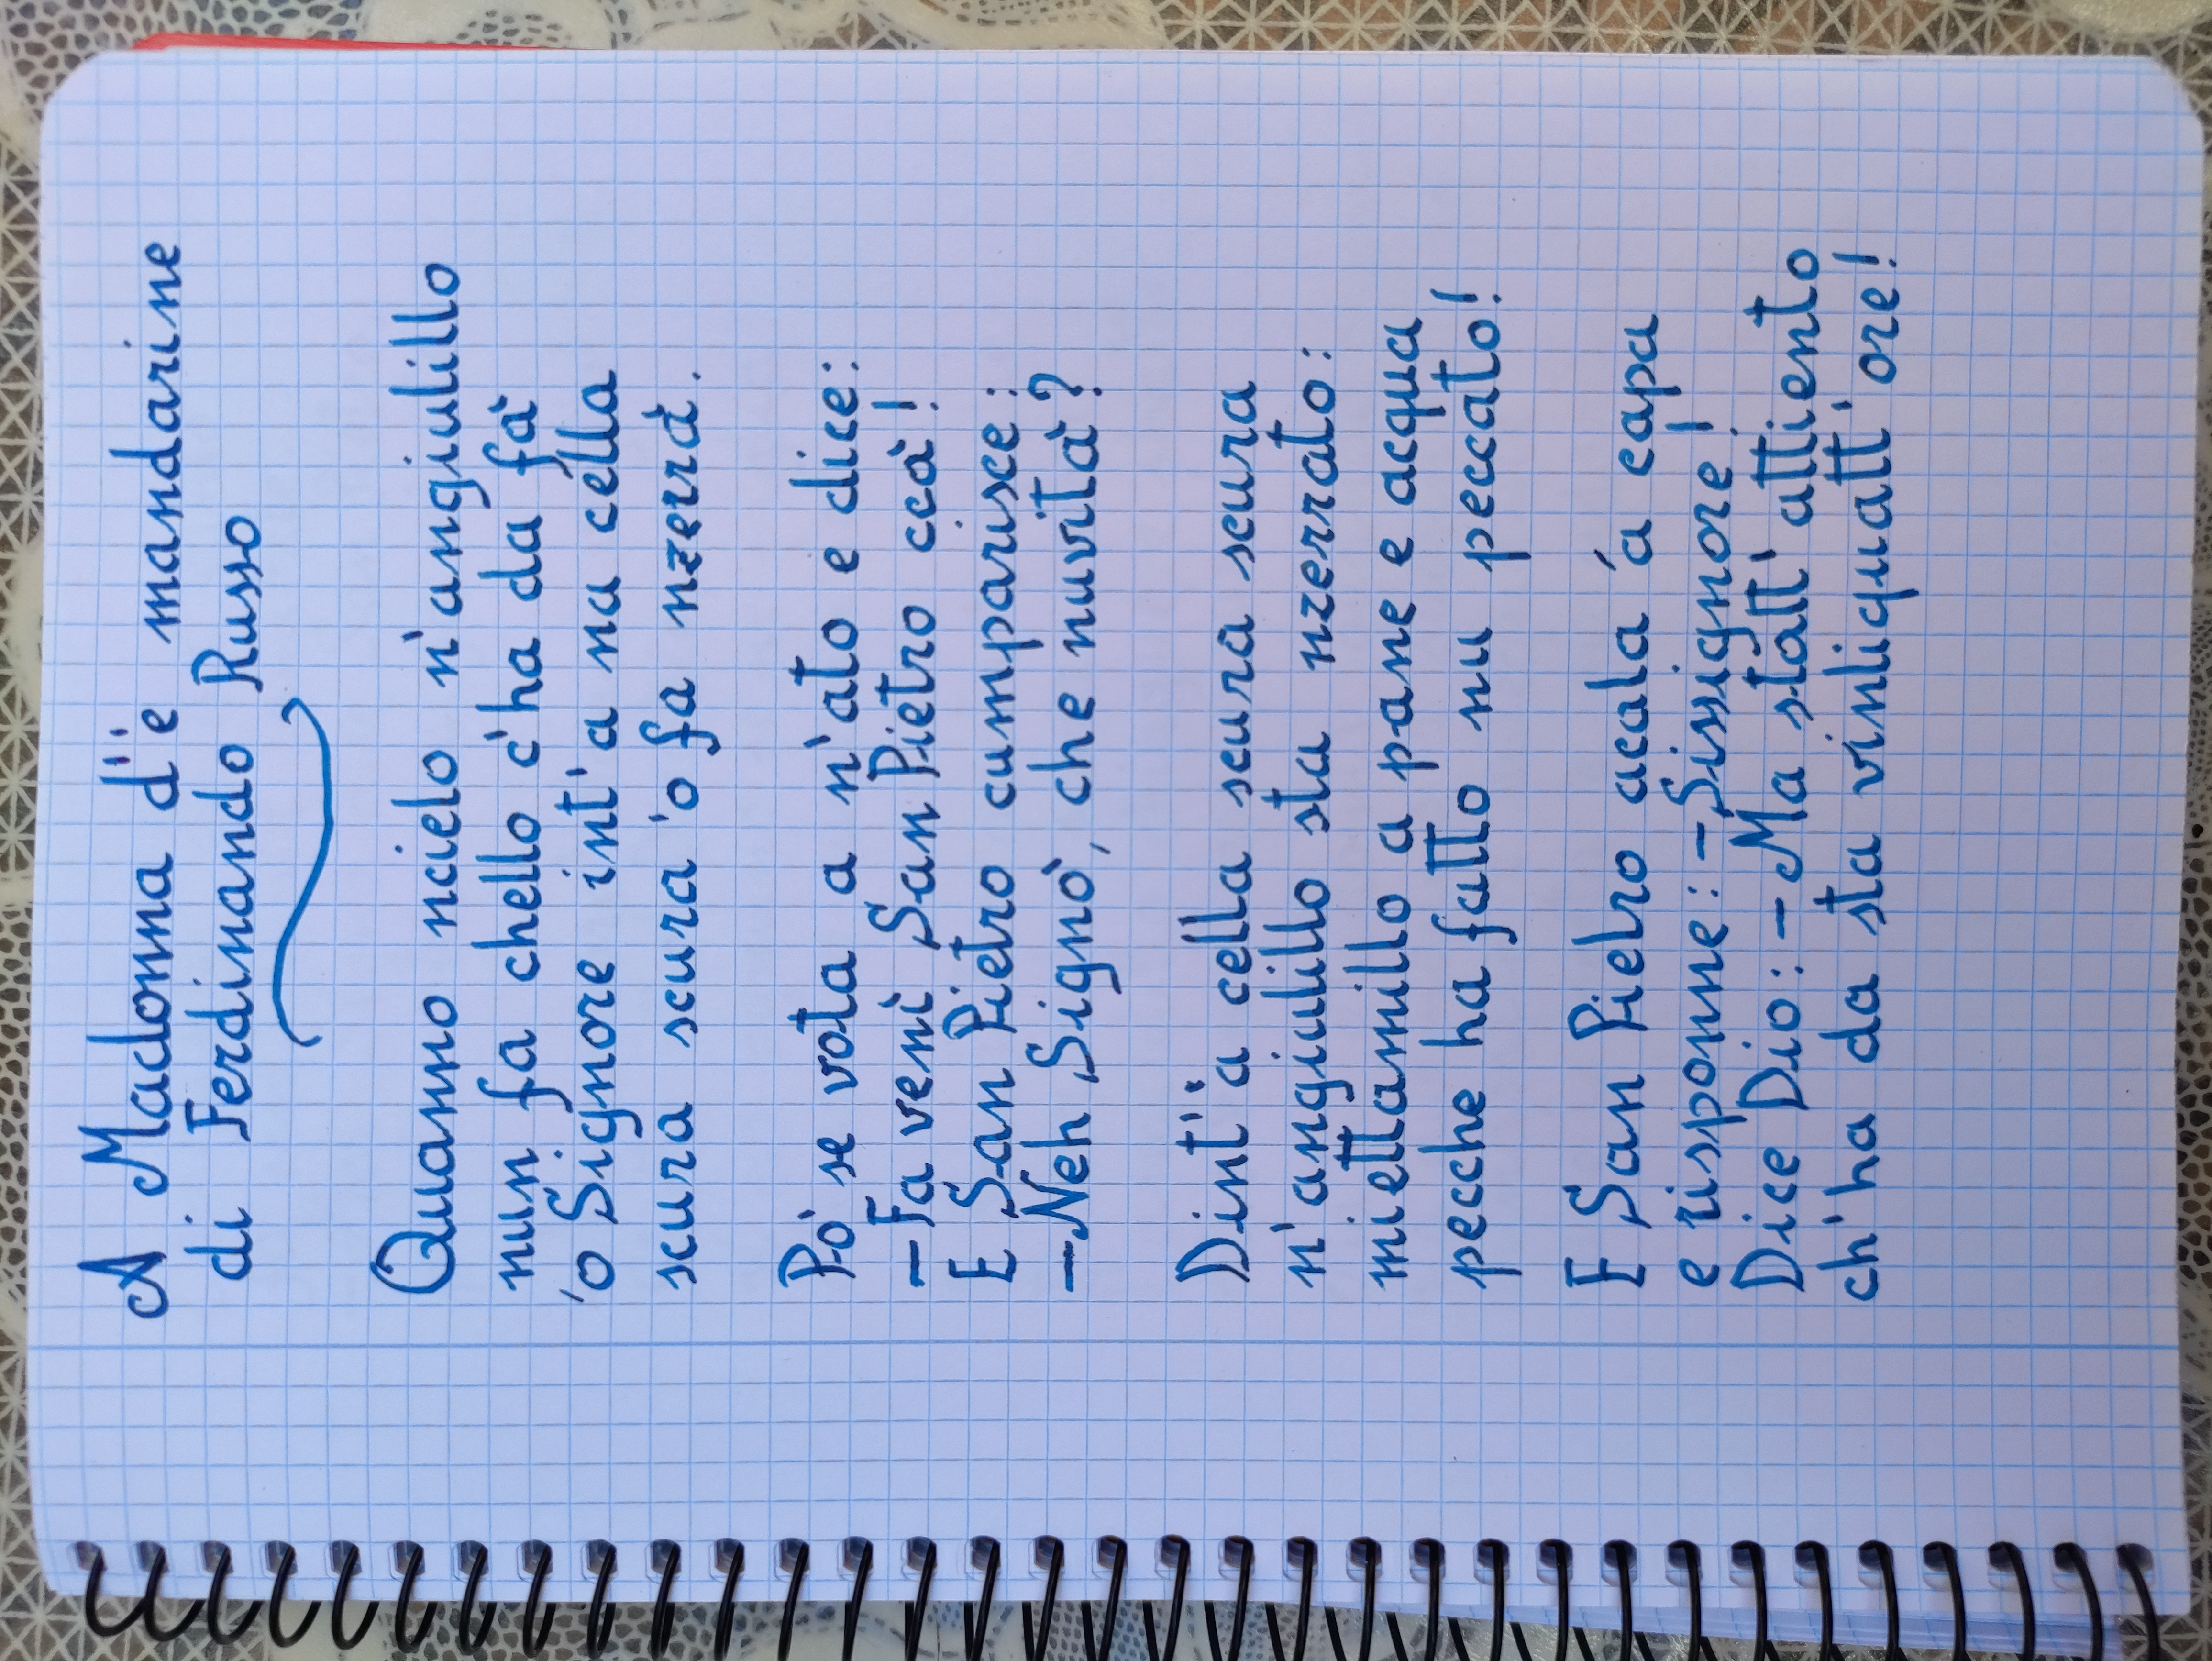 A Madonna d''e mandarine
di Ferdinando Russo
Quanno ncielo n'angiulillo
nun fa chello c'ha da fà
'o Signore int'a na cella
scura scura 'o fa nzerrà.
Pò se vota a n'ato e dice:
-Fa venì San Pietro ccà!
E San Pietro cumparisce:
-Neh Signò, che nuvità?
Dint''a cella scura scura
n'angiulillo sta nzerrato:
miettamillo a pane e acqua
pecche ha fatto nu peccato!
E San Pietro acala 'a capa
e risponne: -Sissignore!
Dice Dio: -Ma statt' attiento
ch'ha da sta vintiquatt' ore!